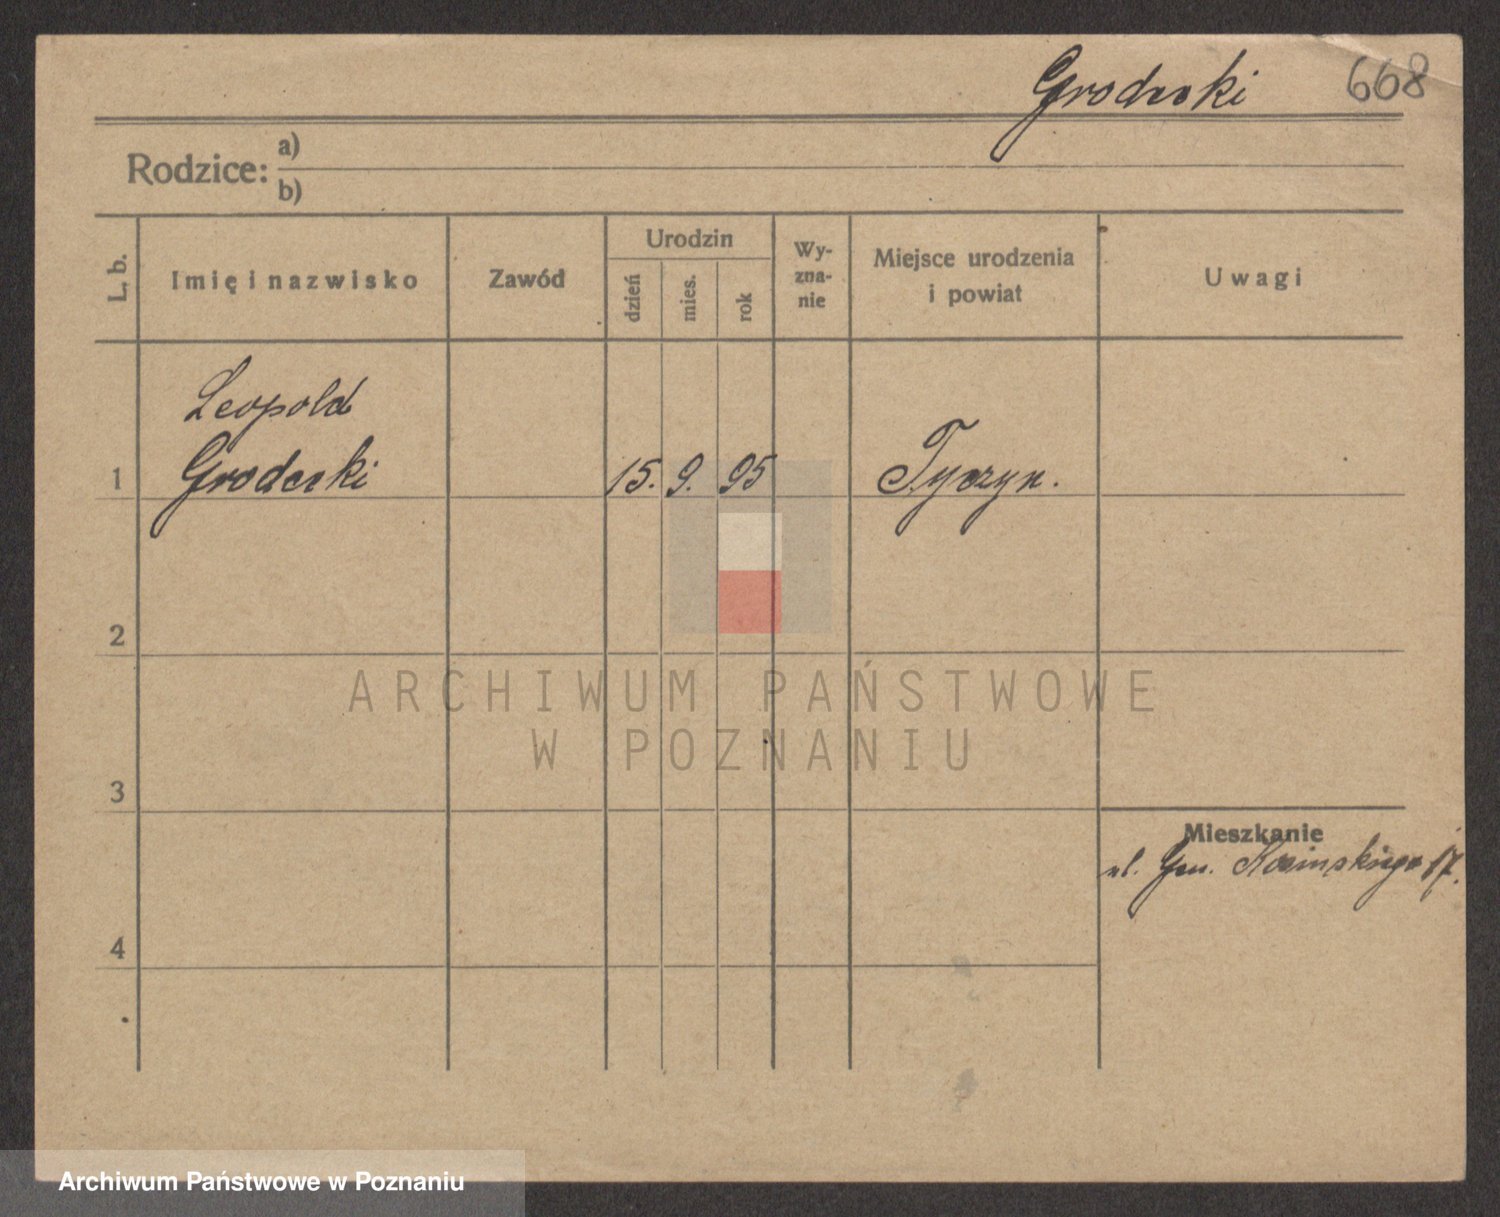 Grodecki 668
Rodzice: a)
b)
L. b.
Imię i nazwisko
Zawód
Urodzin
dzień
mies.
rok
Wy-
zna-
nie
Miejsce urodzenia
i powiat
Uwagi
Leopold
1 Grodecki 15. 9. 95 Tyczyn.
2
ARCHIWUM PAŃSTWOWE
W POZNANIU
3
Mieszkanie
ul. Gen. Kosinskiego 17.
4
Archiwum Państwowe w Poznaniu